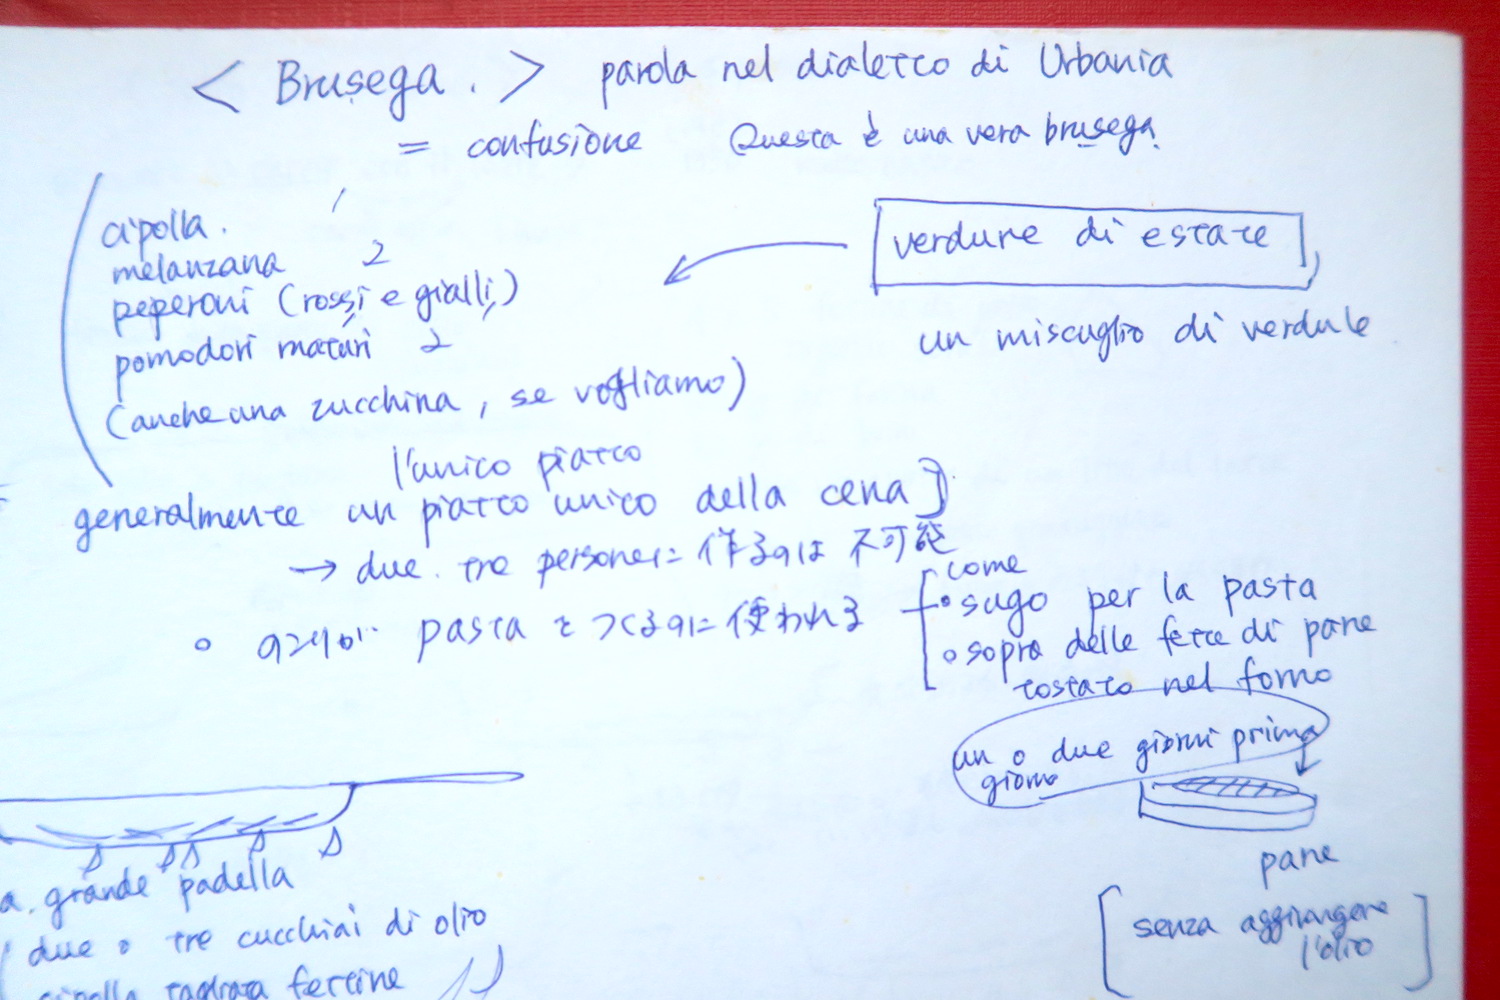 < Brusega. > parola nel dialetto di Urbania
= confusione Questa è una vera brusega.
cipolla. 1
melanzana 2
peperoni (rossi e gialli)
pomodori maturi 2
(anche una zucchina, se vogliamo)
verdure di estate
un miscuglio di verdure
l'unico piatto
generalmente un piatto unico della cena
→ due. tre personeに作るのは不可能
◦ のこりが pastaをつくるのに使われる
come
• sugo per la pasta
◦ sopra delle fette di pane
tostato nel forno
un o due giorni prima
giorno
pane
[senza aggiungere
l'olio]
a. grande padella
(due o tre cucchiai di olio
cipolla tagliata fettine